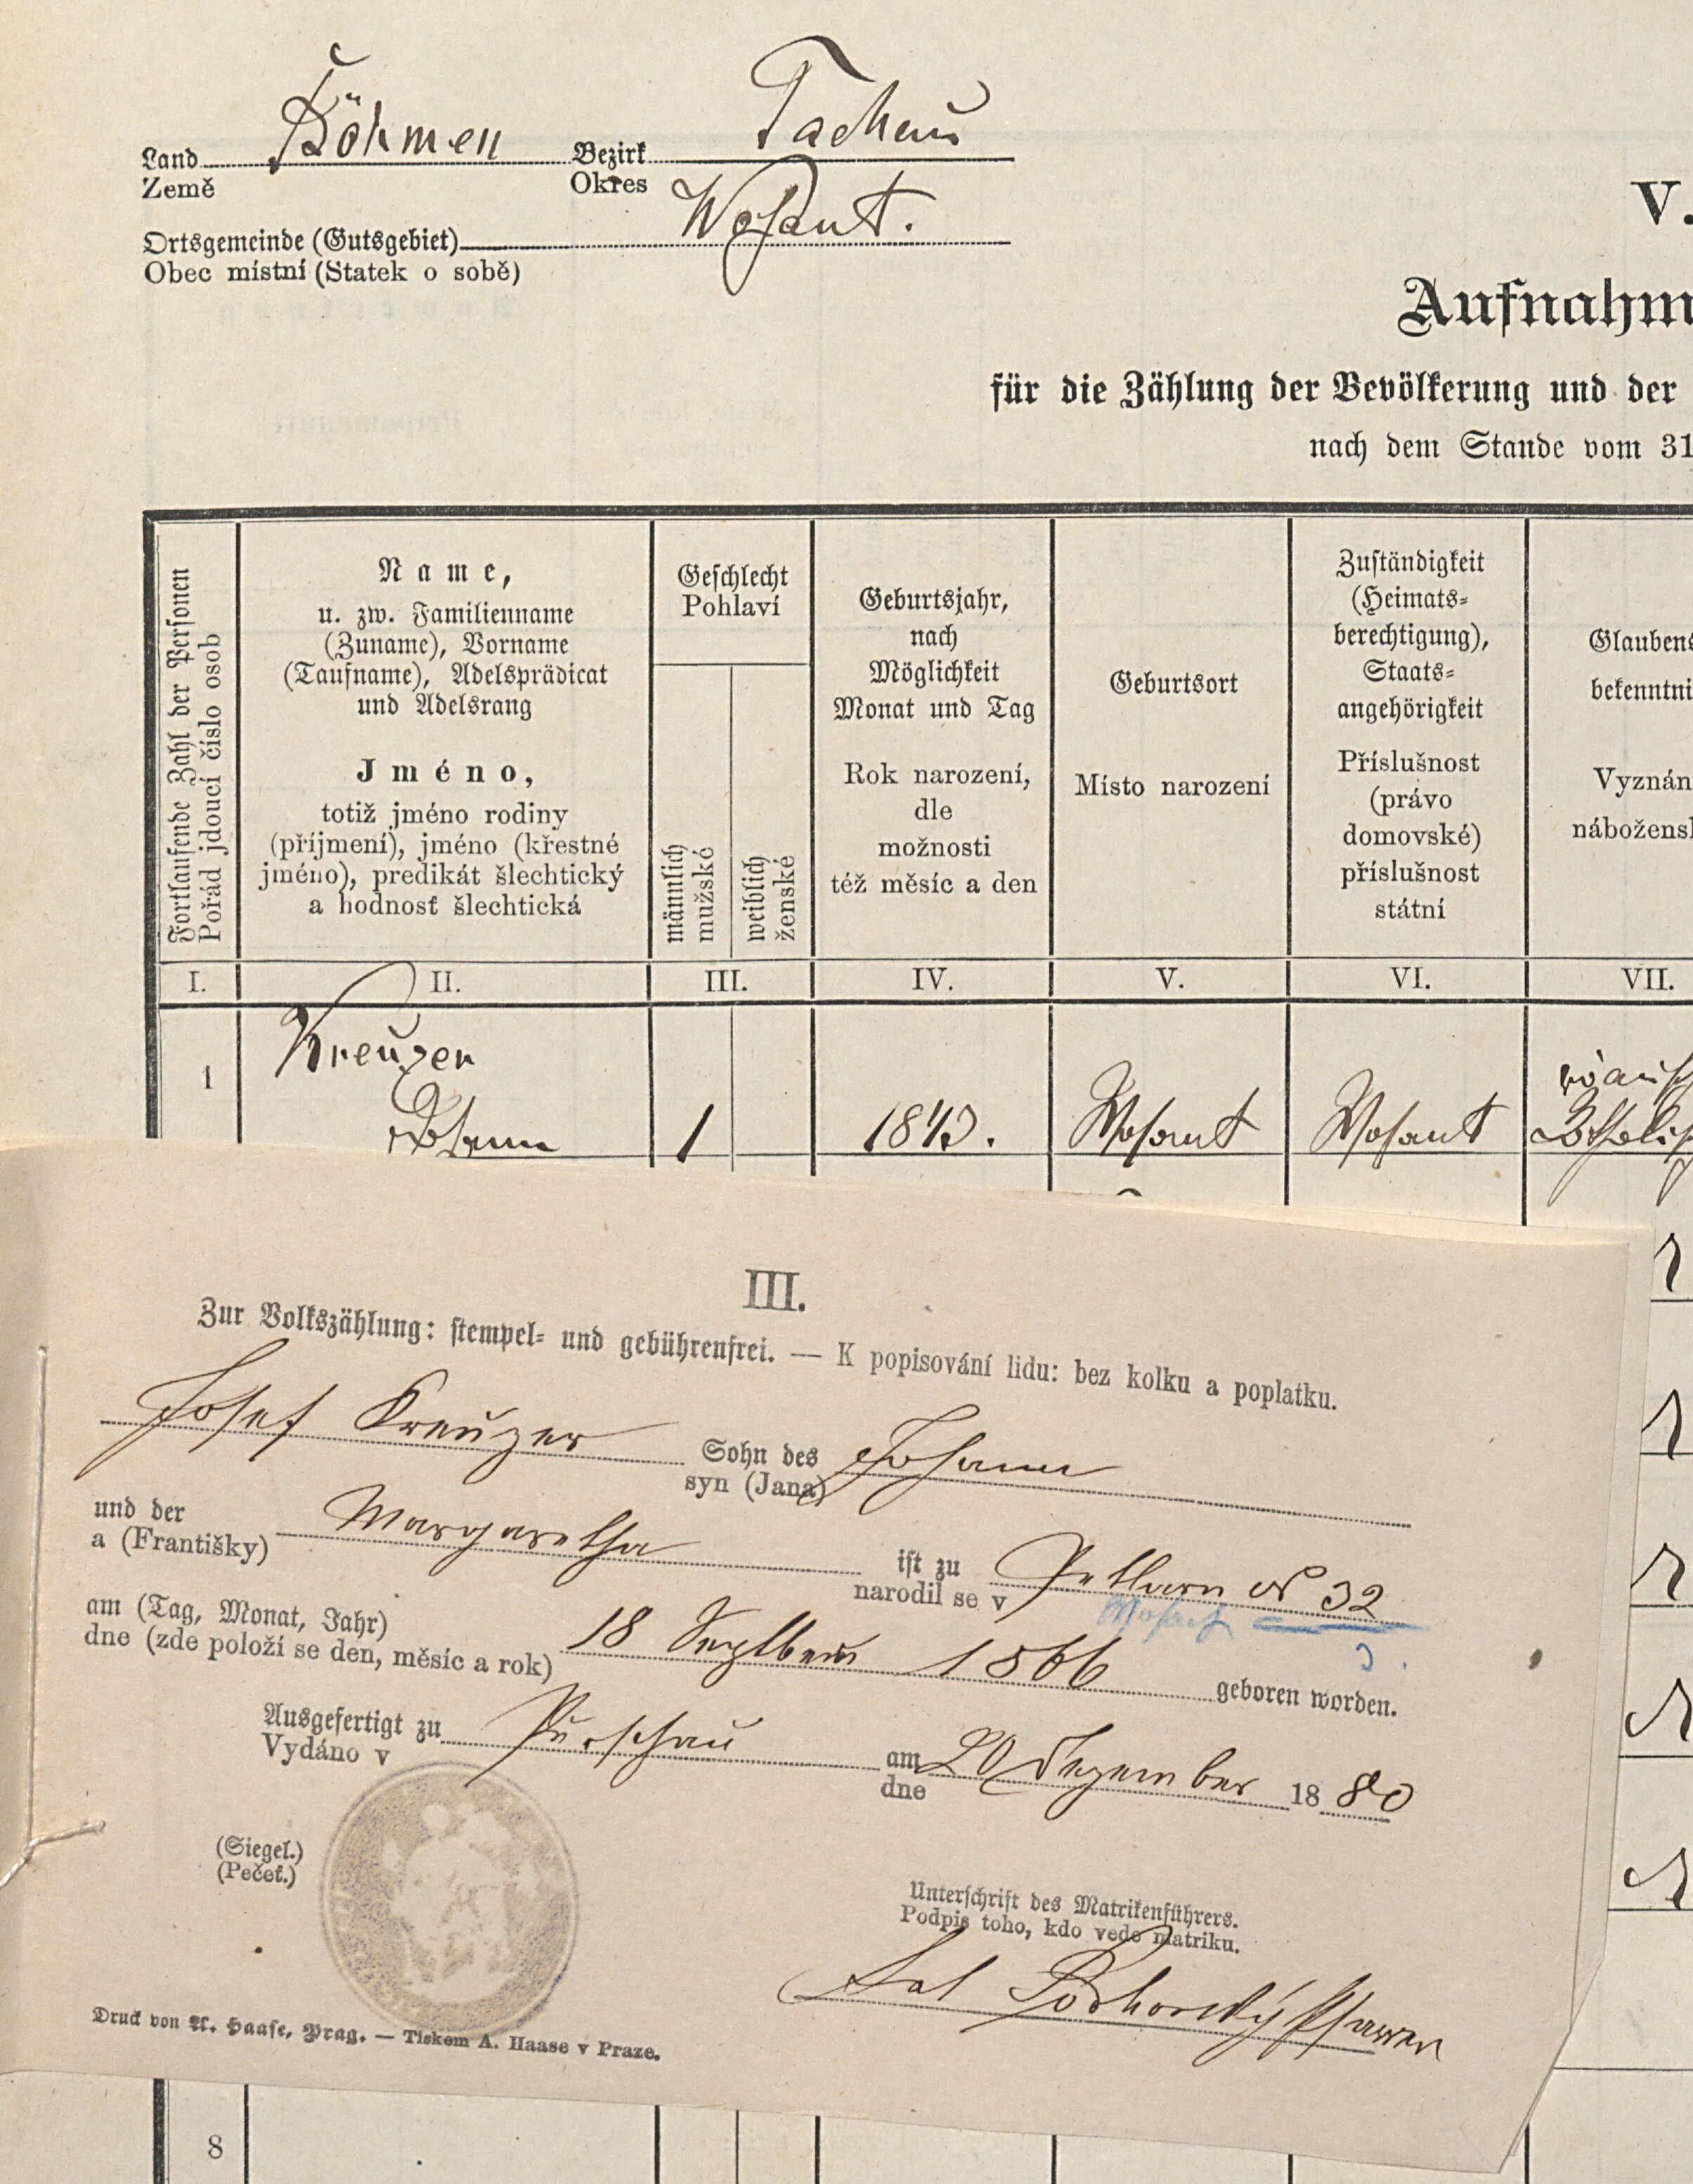 Land Böhmen Bezirk Tachau
Země Okres
Ortsgemeinde (Gutsgebiet) Wosant.
Obec místní (Statek o sobě)
V.
Aufnahm
für die Zählung der Bevölkerung und der
nach dem Stande vom 31
Fortlaufende Zahl der Personen
Pořád jdoucí číslo osob
Name,
u. zw. Familienname
(Zuname), Vorname
(Taufname), Adelsprädicat
und Adelsrang
Jméno,
totiž jméno rodiny
(příjmení), jméno (křestné
jméno), predikát šlechtický
a hodnosť šlechtická
Geschlecht
Pohlaví
männlich
mužské
weiblich
ženské
Geburtsjahr,
nach
Möglichkeit
Monat und Tag
Rok narození,
dle
možnosti
též měsíc a den
Geburtsort
Místo narození
Zuständigkeit
(Heimats-
berechtigung),
Staats-
angehörigkeit
Příslušnost
(právo
domovské)
příslušnost
státní
Glaubens
bekenntni
Vyznán
nábožensk
I. II. III. IV. V. VI. VII.
1 Kreuzer
Johann 1 Wosant Wosant
III.
Zur Volkszählung: stempel- und gebührenfrei. — K popisování lidu: bez kolku a poplatku.
Josef Kreuzer Sohn des Johann
syn (Jana)
und der Margaretha ist zu Petlarn N 32
a (Františky) narodil se v Wosant
am (Tag, Monat, Jahr) 18 Septbem 1866 geboren worden.
dne (zde položí se den, měsíc a rok)
Ausgefertigt zu Purschau am 20 Dezember 1880
Vydáno v dne
(Siegel.)
(Pečeť.)
Unterschrift des Matrikenführers.
Podpis toho, kdo vede matriku.
Pfarrer
Druck von A. Haase, Prag. — Tiskem A. Haase v Praze.
8